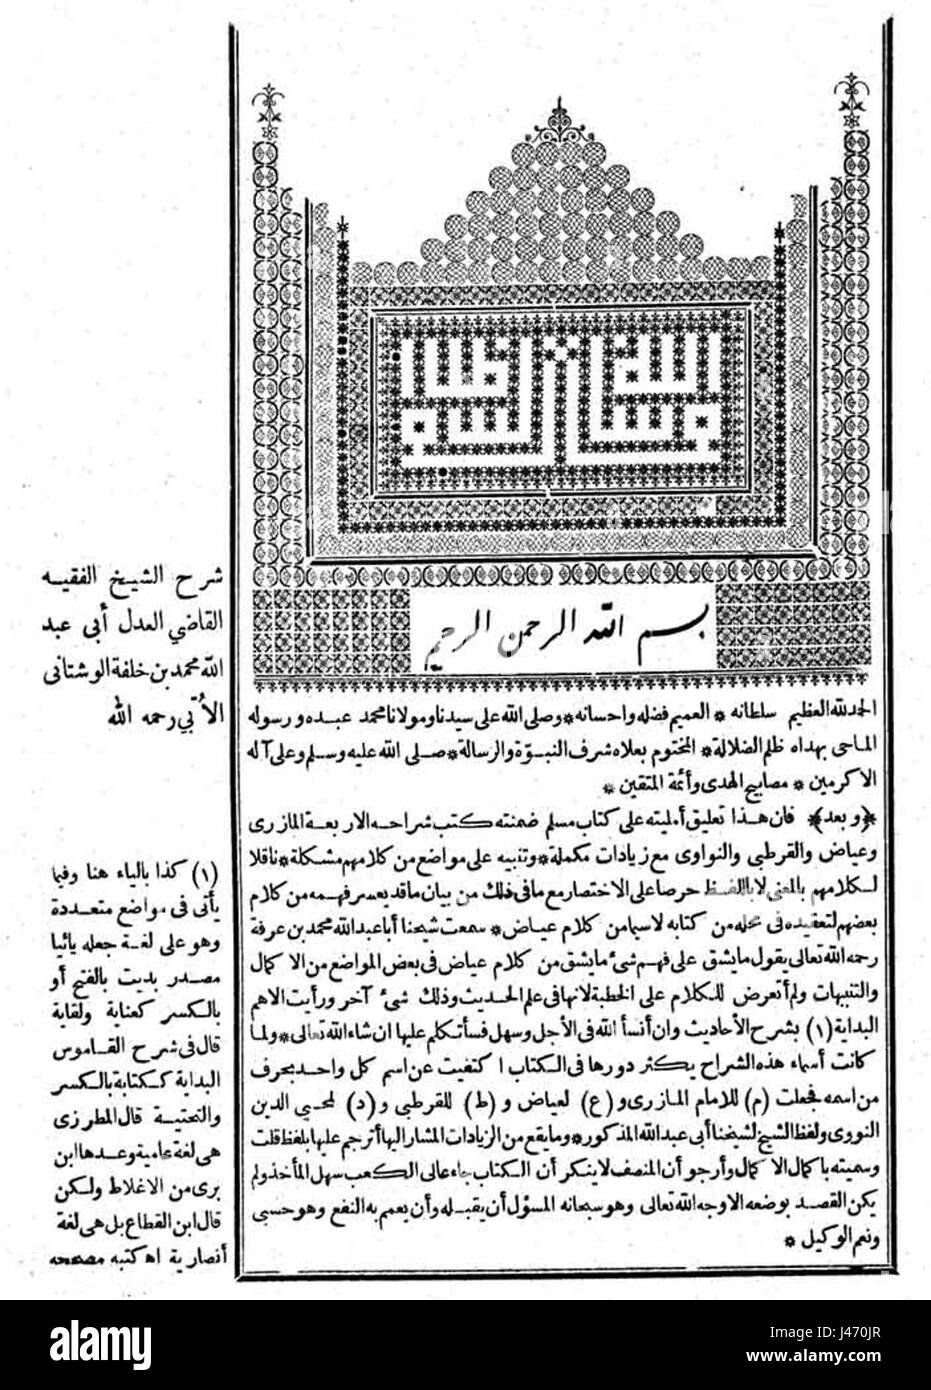 بسم الله الرحمن الرحيم
الحمد لله العظيم سلطانه * العميم فضله واحسانه * وصلى الله على سيدنا ومولانا محمد عبده ورسوله
الماحى بهداه ظلم الضلالة * المختوم بعلاه شرف النبوّة والرسالة * صلى الله عليه وسلم وعلى آله
الاكرمين * مصابيح الهدى وأئمة المتقين *
﴿وبعد﴾ فان هذا تعليق أمليته على كتاب مسلم ضمنته كتب شراحه الاربعة المازرى
وعياض والقرطبى والنواوى مع زيادات مكملة * وتنبيه على مواضع من كلامهم مشكلة * ناقلا
لكلامهم بالمعنى لا باللفظ حرصا على الاختصار مع ما فى ذلك من بيان ما قد يعسر فهمه من كلام
بعضهم لتعقيده فى محله من كتابه لاسيما من كلام عياض * سمعت شيخنا أبا عبد الله محمد بن عرفة
رحمه الله تعالى يقول ما يشق على فهم شئ ما يشق من كلام عياض فى بعض المواضع من الاكمال
والتنبيهات ولم أتعرض للكلام على الخطبة لانها فى علم الحديث وذلك شئ آخر ورأيت الاهم
البداية (١) بشرح الأحاديث وان أنسأ الله فى الأجل وسهل فسأتكلم عليها ان شاء الله تعالى * ولما
كانت أسماء هذه الشراح يكثر دورها فى الكتاب اكتفيت عن اسم كل واحد بحرف
من اسمه فجعلت (م) للامام المازرى و(ع) لعياض و(ط) للقرطبى و(د) لمحيى الدين
النووى ولفظ الشيخ لشيخنا أبى عبد الله المذكور * وما يقع من الزيادات المشار اليها أترجم عليها بلفظ قلت
وسميته باكمال الاكمال وأرجو أن المنصف لا ينكر أن الكتاب جاء عالى الكعب سهل المأخذ ولم
يكن القصد بوضعه الا وجه الله تعالى وهو سبحانه المسؤل أن يقبله وأن يعمم به النفع وهو حسبى
ونعم الوكيل *
شرح الشيخ الفقيه
القاضي العدل أبي عبد
الله محمد بن خلفة الوشتانى
الأُبّي رحمه الله
(١) كذا بالياء هنا وفيما
يأتى فى مواضع متعددة
وهو على لغة جعله يائيا
مصدر بديت بالفتح أو
بالكسر كعناية ولقاية
قال فى شرح القاموس
البداية ككتابة بالكسر
والتحتية قال المطرزى
هى لغة عامية وعدها ابن
برى من الاغلاط ولكن
قال ابن القطاع بل هى لغة
أنصارية اه كتبه مصححه
alamy
alamy
Image ID: J470JR
www.alamy.com